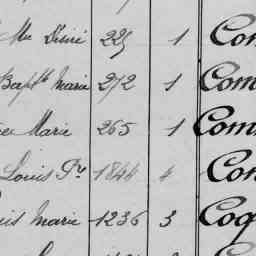 Me Désiré 225 1 Com
Bapte Marie 272 1 Com
Marie 265 1 Com
Louis Pre 1844 4 Con
Marie 1236 3 Coq